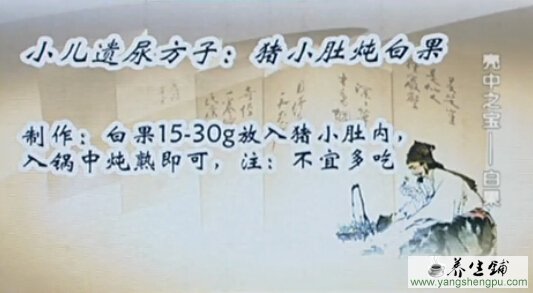 小儿遗尿方子：猪小肚炖白果
制作：白果15-30g放入猪小肚内，
入锅中炖熟即可，注：不宜多吃
壳中之宝——白果
养生铺
www.yangshengpu.com